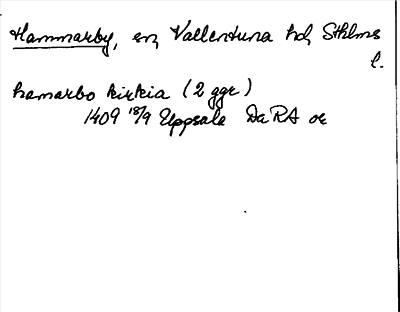 Hammarby, sn, Vallentuna hd, Sthlms
l.
hamarbo kirkia (2 ggr)
1409 18/9 Uppsala DaRA or